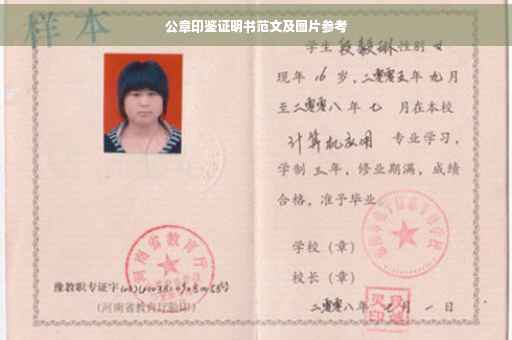 公章印鉴证明书范文及图片参考
样本
学生段毅琳性别女
现年16岁，二零零五年九月
至二零零八年七月在本校
计算机应用 专业学习，
学制三年，修业期满，成绩
合格，准予毕业
学校（章）
校长（章）
二零零八年七月一日
河南省教育厅
豫教职专证字
（河南省教育厅验印）